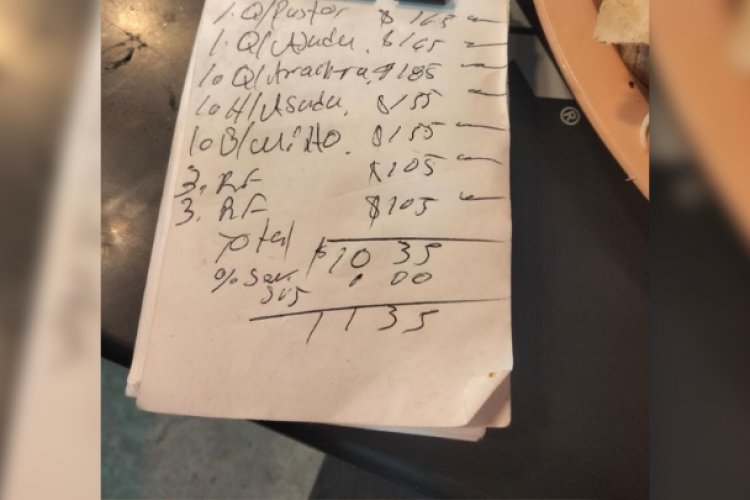 1. Q/Pastor $ 165
1. Q/Asada. $165
1. Q/Arachera. $185
1. H/Asada. $155
1. B/ . $155
3. RF $105
3. RF $105
Total $1035
% Ser. 100
1135
®